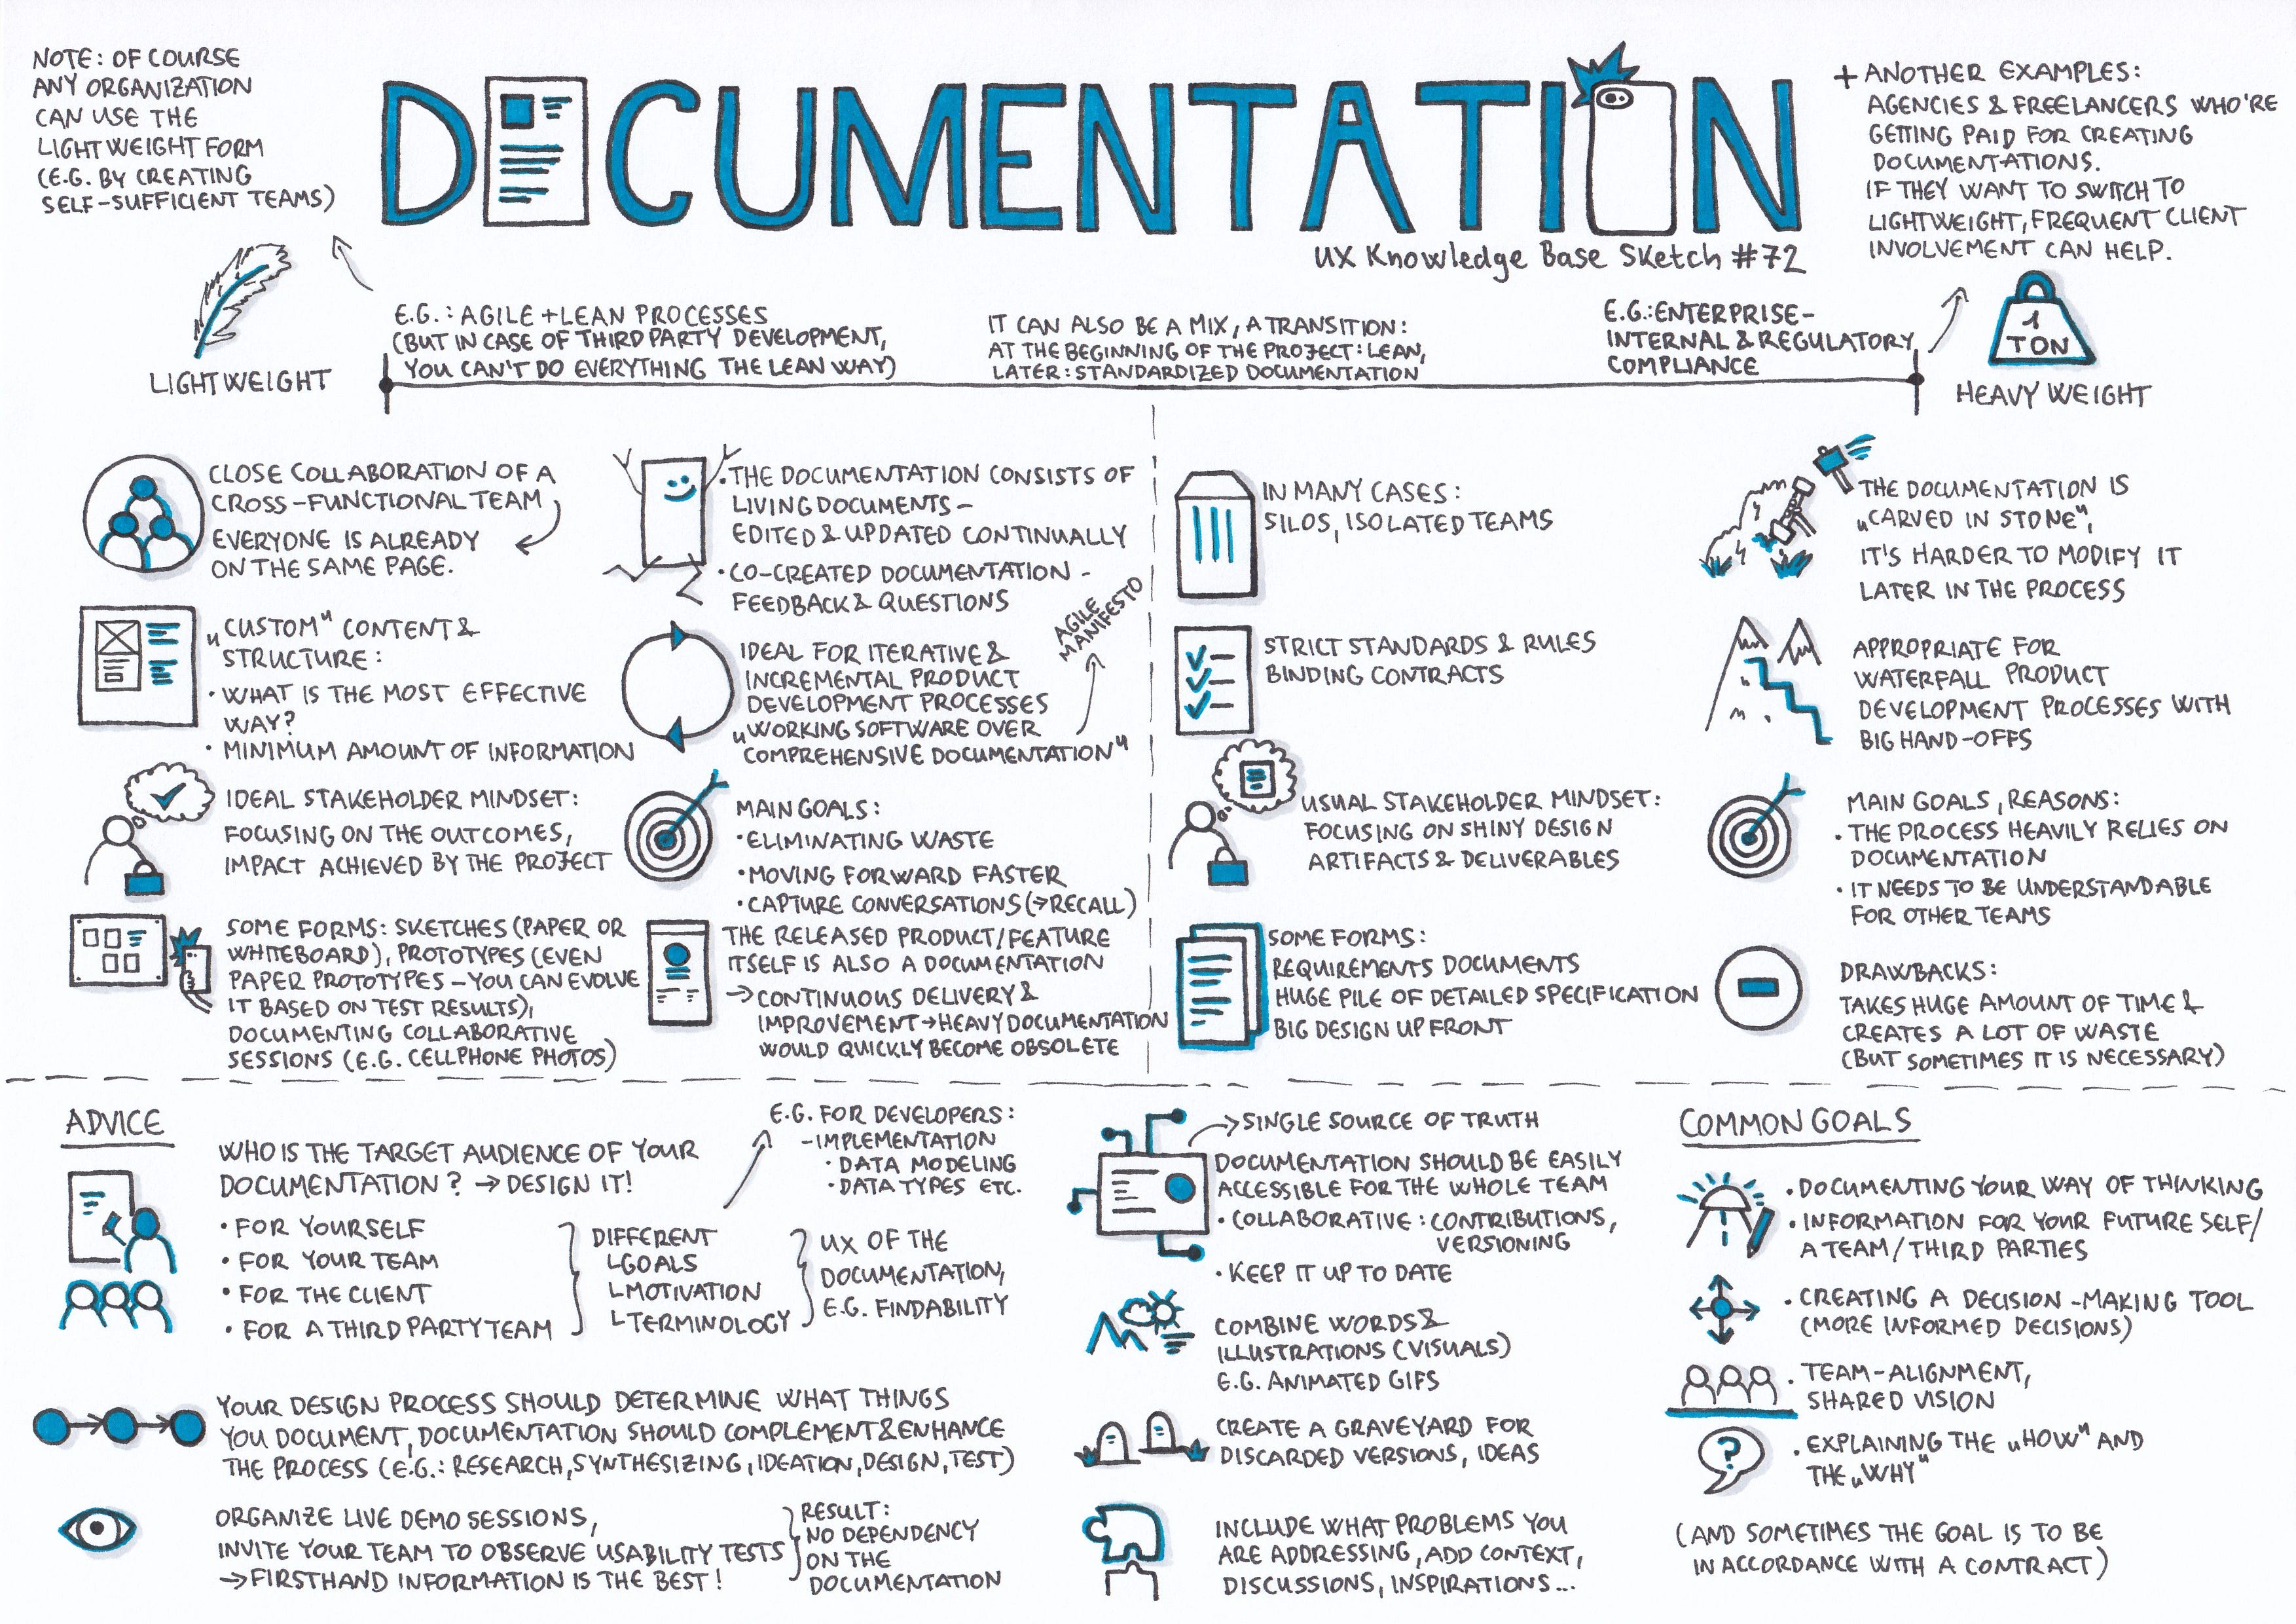 NOTE: OF COURSE
ANY ORGANIZATION
CAN USE THE
LIGHTWEIGHT FORM
(E.G. BY CREATING
SELF-SUFFICIENT TEAMS)
DOCUMENTATION
UX Knowledge Base Sketch #72
+ ANOTHER EXAMPLES:
AGENCIES & FREELANCERS WHO'RE
GETTING PAID FOR CREATING
DOCUMENTATIONS.
IF THEY WANT TO SWITCH TO
LIGHTWEIGHT, FREQUENT CLIENT
INVOLVEMENT CAN HELP.
LIGHTWEIGHT
E.G.: AGILE + LEAN PROCESSES
(BUT IN CASE OF THIRD PARTY DEVELOPMENT,
YOU CAN'T DO EVERYTHING THE LEAN WAY)
IT CAN ALSO BE A MIX, A TRANSITION:
AT THE BEGINNING OF THE PROJECT: LEAN,
LATER: STANDARDIZED DOCUMENTATION
E.G.: ENTERPRISE-
INTERNAL & REGULATORY
COMPLIANCE
1
TON
HEAVY WEIGHT
CLOSE COLLABORATION OF A
CROSS-FUNCTIONAL TEAM
EVERYONE IS ALREADY
ON THE SAME PAGE.
„CUSTOM" CONTENT &
STRUCTURE:
• WHAT IS THE MOST EFFECTIVE
WAY?
• MINIMUM AMOUNT OF INFORMATION
IDEAL STAKEHOLDER MINDSET:
FOCUSING ON THE OUTCOMES,
IMPACT ACHIEVED BY THE PROJECT
SOME FORMS: SKETCHES (PAPER OR
WHITEBOARD), PROTOTYPES (EVEN
PAPER PROTOTYPES – YOU CAN EVOLVE
IT BASED ON TEST RESULTS),
DOCUMENTING COLLABORATIVE
SESSIONS (E.G. CELLPHONE PHOTOS)
• THE DOCUMENTATION CONSISTS OF
LIVING DOCUMENTS –
EDITED & UPDATED CONTINUALLY
• CO-CREATED DOCUMENTATION -
FEEDBACK & QUESTIONS
IDEAL FOR ITERATIVE &
INCREMENTAL PRODUCT
DEVELOPMENT PROCESSES
„WORKING SOFTWARE OVER
COMPREHENSIVE DOCUMENTATION"
AGILE
MANIFESTO
MAIN GOALS:
• ELIMINATING WASTE
• MOVING FORWARD FASTER
• CAPTURE CONVERSATIONS (→ RECALL)
THE RELEASED PRODUCT/FEATURE
ITSELF IS ALSO A DOCUMENTATION
→ CONTINUOUS DELIVERY &
IMPROVEMENT → HEAVY DOCUMENTATION
WOULD QUICKLY BECOME OBSOLETE
IN MANY CASES:
SILOS, ISOLATED TEAMS
STRICT STANDARDS & RULES
BINDING CONTRACTS
USUAL STAKEHOLDER MINDSET:
FOCUSING ON SHINY DESIGN
ARTIFACTS & DELIVERABLES
SOME FORMS:
REQUIREMENTS DOCUMENTS
HUGE PILE OF DETAILED SPECIFICATION
BIG DESIGN UP FRONT
THE DOCUMENTATION IS
„CARVED IN STONE",
IT'S HARDER TO MODIFY IT
LATER IN THE PROCESS
APPROPRIATE FOR
WATERFALL PRODUCT
DEVELOPMENT PROCESSES WITH
BIG HAND-OFFS
MAIN GOALS, REASONS:
• THE PROCESS HEAVILY RELIES ON
DOCUMENTATION
• IT NEEDS TO BE UNDERSTANDABLE
FOR OTHER TEAMS
DRAWBACKS:
TAKES HUGE AMOUNT OF TIME &
CREATES A LOT OF WASTE
(BUT SOMETIMES IT IS NECESSARY)
ADVICE
WHO IS THE TARGET AUDIENCE OF YOUR
DOCUMENTATION? → DESIGN IT!
• FOR YOURSELF
• FOR YOUR TEAM
• FOR THE CLIENT
• FOR A THIRD PARTY TEAM
DIFFERENT
GOALS
MOTIVATION
TERMINOLOGY
E.G. FOR DEVELOPERS:
- IMPLEMENTATION
• DATA MODELING
• DATA TYPES ETC.
UX OF THE
DOCUMENTATION,
E.G. FINDABILITY
YOUR DESIGN PROCESS SHOULD DETERMINE WHAT THINGS
YOU DOCUMENT, DOCUMENTATION SHOULD COMPLEMENT & ENHANCE
THE PROCESS (E.G.: RESEARCH, SYNTHESIZING, IDEATION, DESIGN, TEST)
ORGANIZE LIVE DEMO SESSIONS,
INVITE YOUR TEAM TO OBSERVE USABILITY TESTS
→ FIRSTHAND INFORMATION IS THE BEST!
RESULT:
NO DEPENDENCY
ON THE
DOCUMENTATION
→ SINGLE SOURCE OF TRUTH
DOCUMENTATION SHOULD BE EASILY
ACCESSIBLE FOR THE WHOLE TEAM
• COLLABORATIVE: CONTRIBUTIONS,
VERSIONING
• KEEP IT UP TO DATE
COMBINE WORDS &
ILLUSTRATIONS (VISUALS)
E.G. ANIMATED GIFS
CREATE A GRAVEYARD FOR
DISCARDED VERSIONS, IDEAS
INCLUDE WHAT PROBLEMS YOU
ARE ADDRESSING, ADD CONTEXT,
DISCUSSIONS, INSPIRATIONS...
COMMON GOALS
• DOCUMENTING YOUR WAY OF THINKING
• INFORMATION FOR YOUR FUTURE SELF/
A TEAM/THIRD PARTIES
• CREATING A DECISION-MAKING TOOL
(MORE INFORMED DECISIONS)
• TEAM-ALIGNMENT,
SHARED VISION
?
• EXPLAINING THE „HOW" AND
THE „WHY"
(AND SOMETIMES THE GOAL IS TO BE
IN ACCORDANCE WITH A CONTRACT)